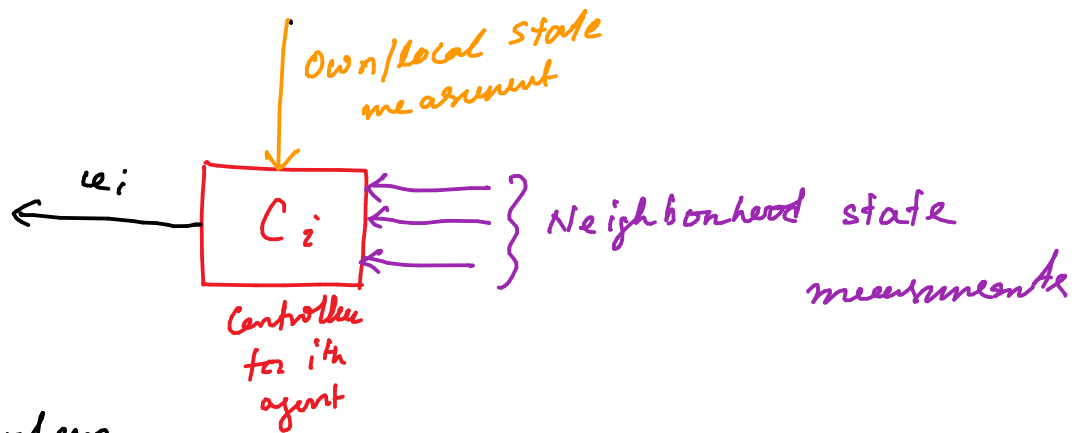 Own/local state
measurement
ui
Ci
Neighborhood state
measurements
Controller
for ith
agent